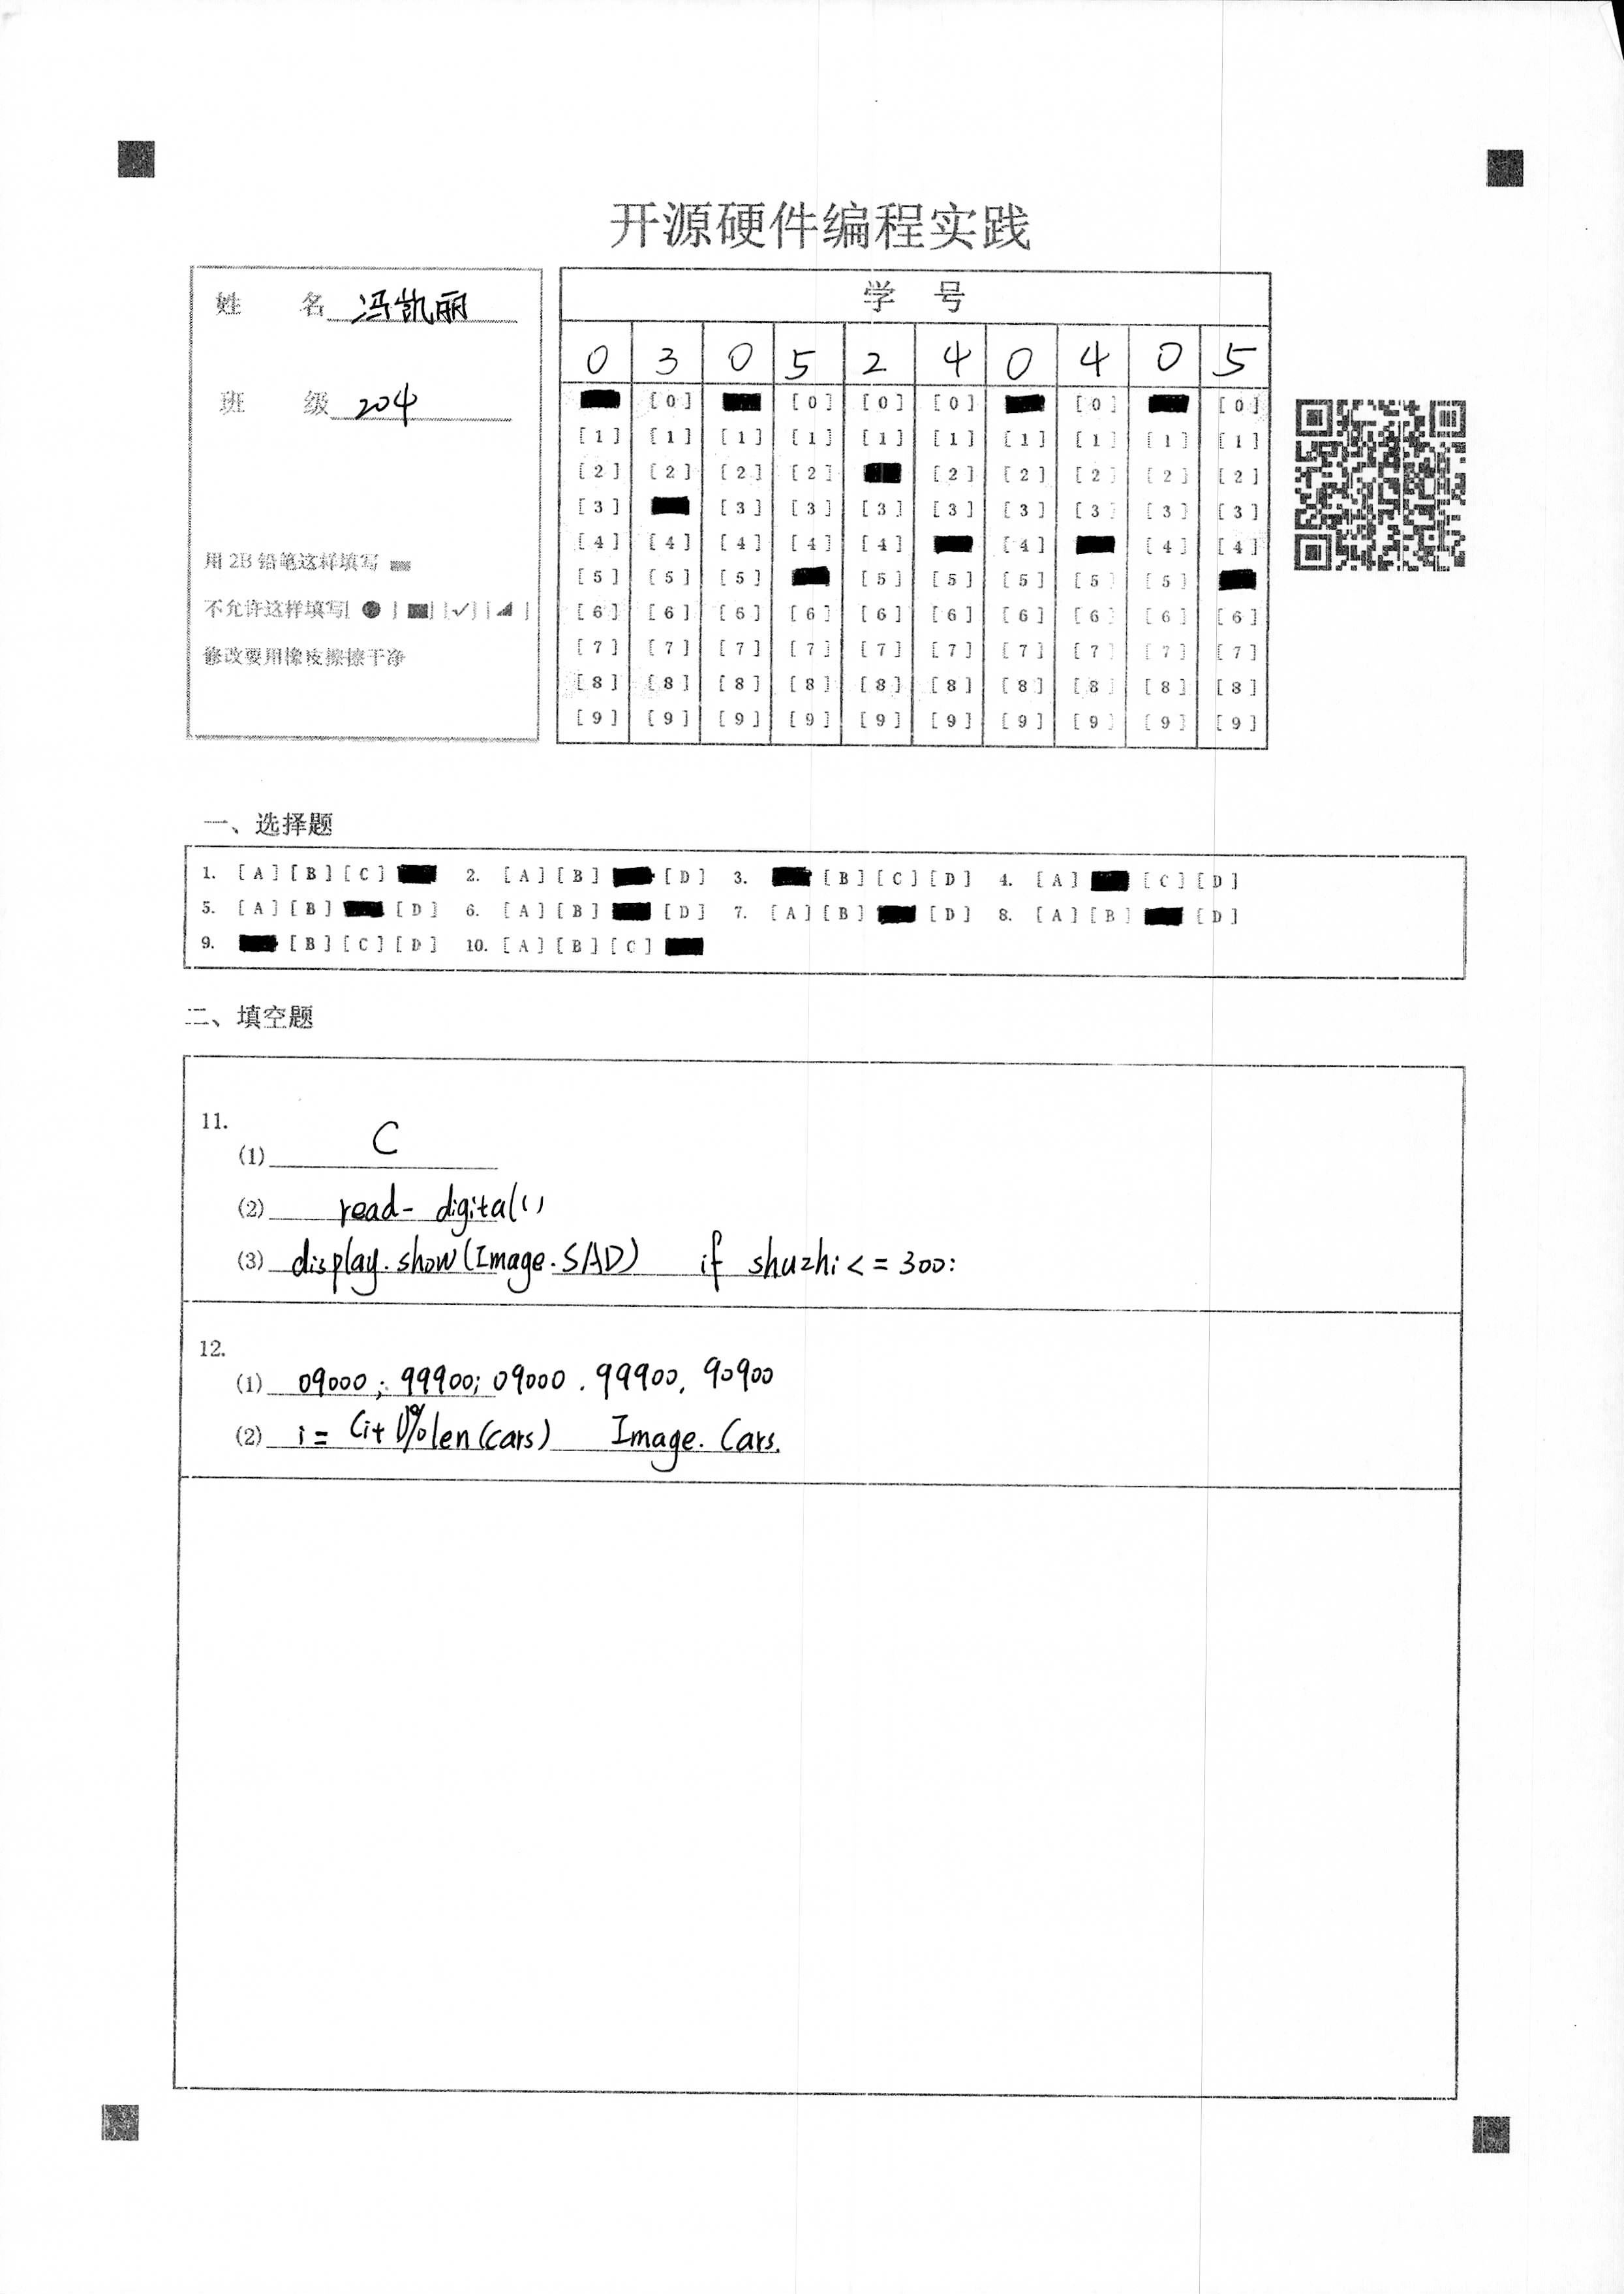 开源硬件编程实践
姓 名 冯凯丽
班 级 204
用 2B 铅笔这样填写
不允许这样填写[ ● ] [■] [✓] [◢]
修改要用橡皮擦擦干净
学 号
0 3 0 5 2 4 0 4 0 5
[0] [0] [0] [0] [0] [0]
[1] [1] [1] [1] [1] [1] [1] [1] [1] [1]
[2] [2] [2] [2] [2] [2] [2] [2] [2]
[3] [3] [3] [3] [3] [3] [3] [3] [3]
[4] [4] [4] [4] [4] [4] [4] [4]
[5] [5] [5] [5] [5] [5] [5] [5]
[6] [6] [6] [6] [6] [6] [6] [6] [6] [6]
[7] [7] [7] [7] [7] [7] [7] [7] [7] [7]
[8] [8] [8] [8] [8] [8] [8] [8] [8] [8]
[9] [9] [9] [9] [9] [9] [9] [9] [9] [9]
一、选择题
1. [A] [B] [C] 2. [A] [B] [D] 3. [B] [C] [D] 4. [A] [C] [D]
5. [A] [B] [D] 6. [A] [B] [D] 7. [A] [B] [D] 8. [A] [B] [D]
9. [B] [C] [D] 10. [A] [B] [C]
二、填空题
11.
(1) C
(2) read- digital()
(3) display.show(Image.SAD) if shuzhi<=300:
12.
(1) 09000; 99900; 09000. 99900, 90900
(2) i=(i+1)%len(cars) Image. Cars.